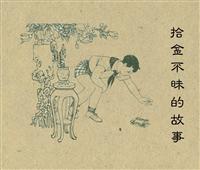 拾金不昧的故事